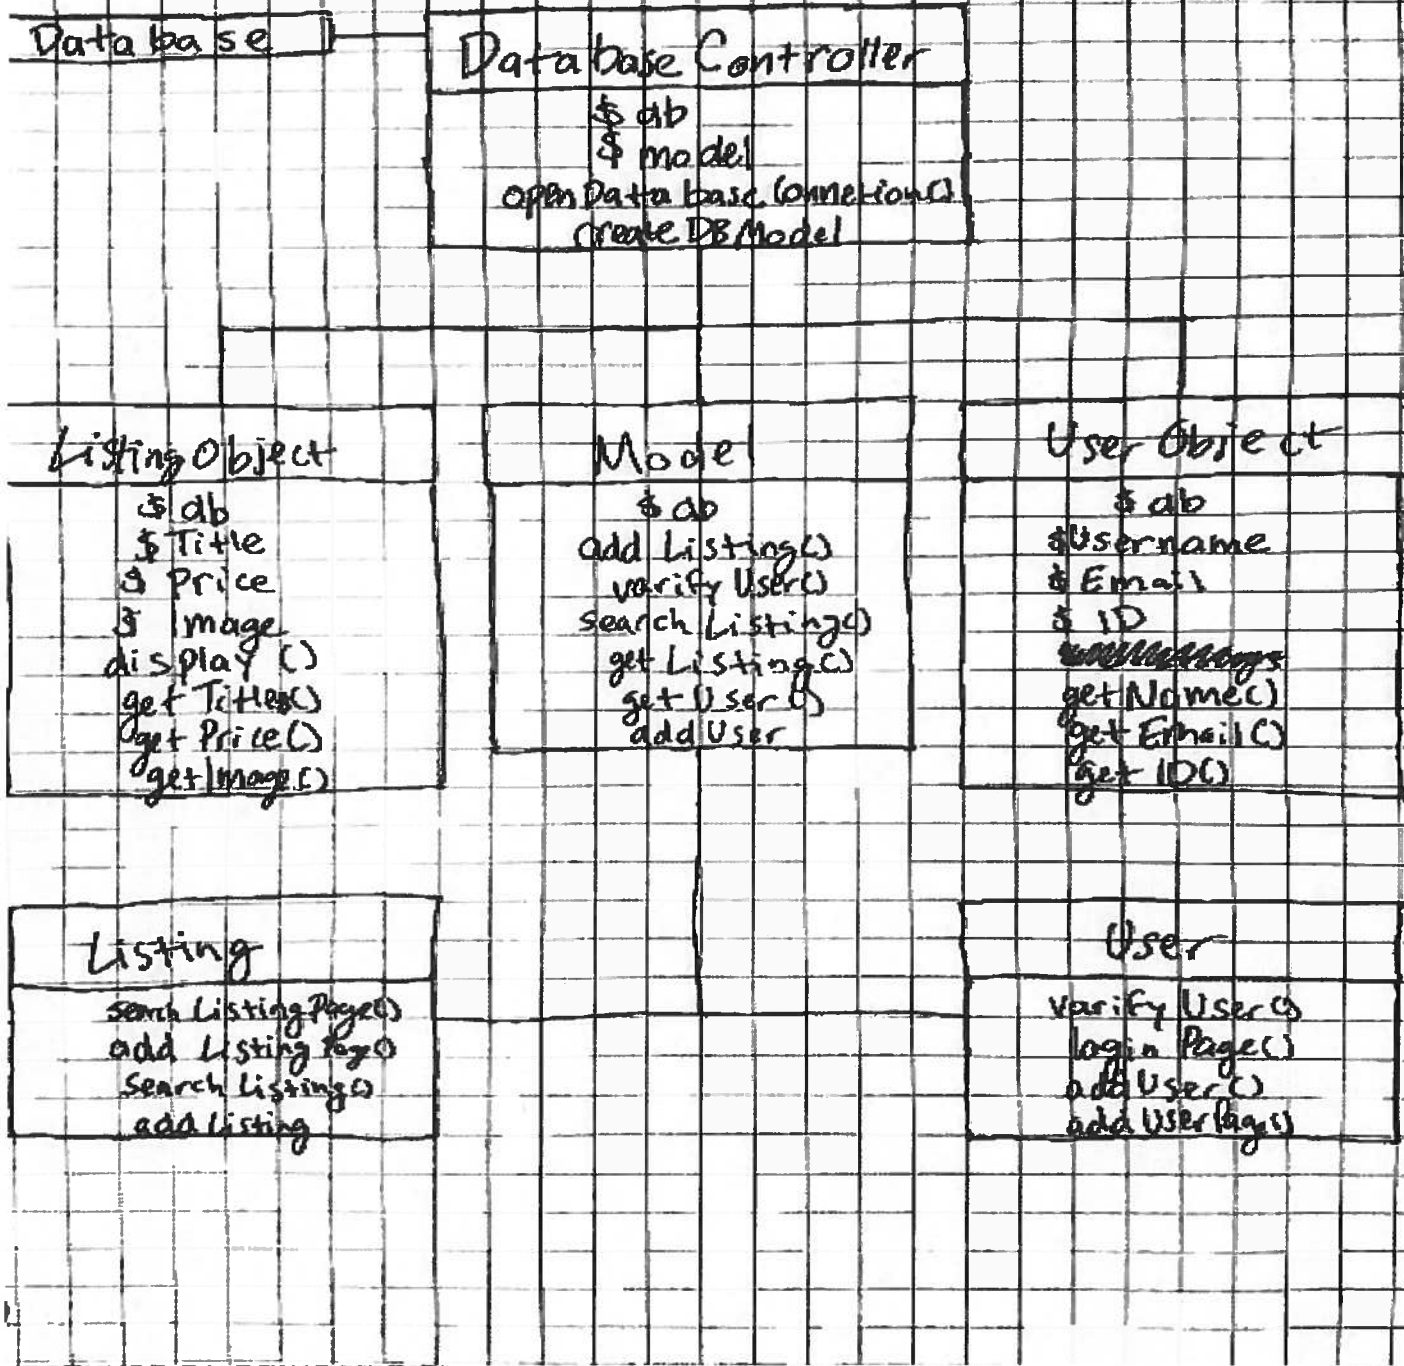 Database
Database Controller
$ db
$ model
openDatabaseConnetion()
createDBModel
Listing Object
$ db
$ Title
$ Price
$ Image
display ()
getTitles()
getPrice()
getImage()
Model
$ db
addListing()
varifyUser()
searchListing()
getListing()
getUser()
addUser
User Object
$ db
$Username
$ Email
$ ID
getName()
getEmail()
getID()
Listing
searchListingPage()
addListingPage()
searchListing()
addListing
User
varifyUser()
loginPage()
addUser()
addUserPage()